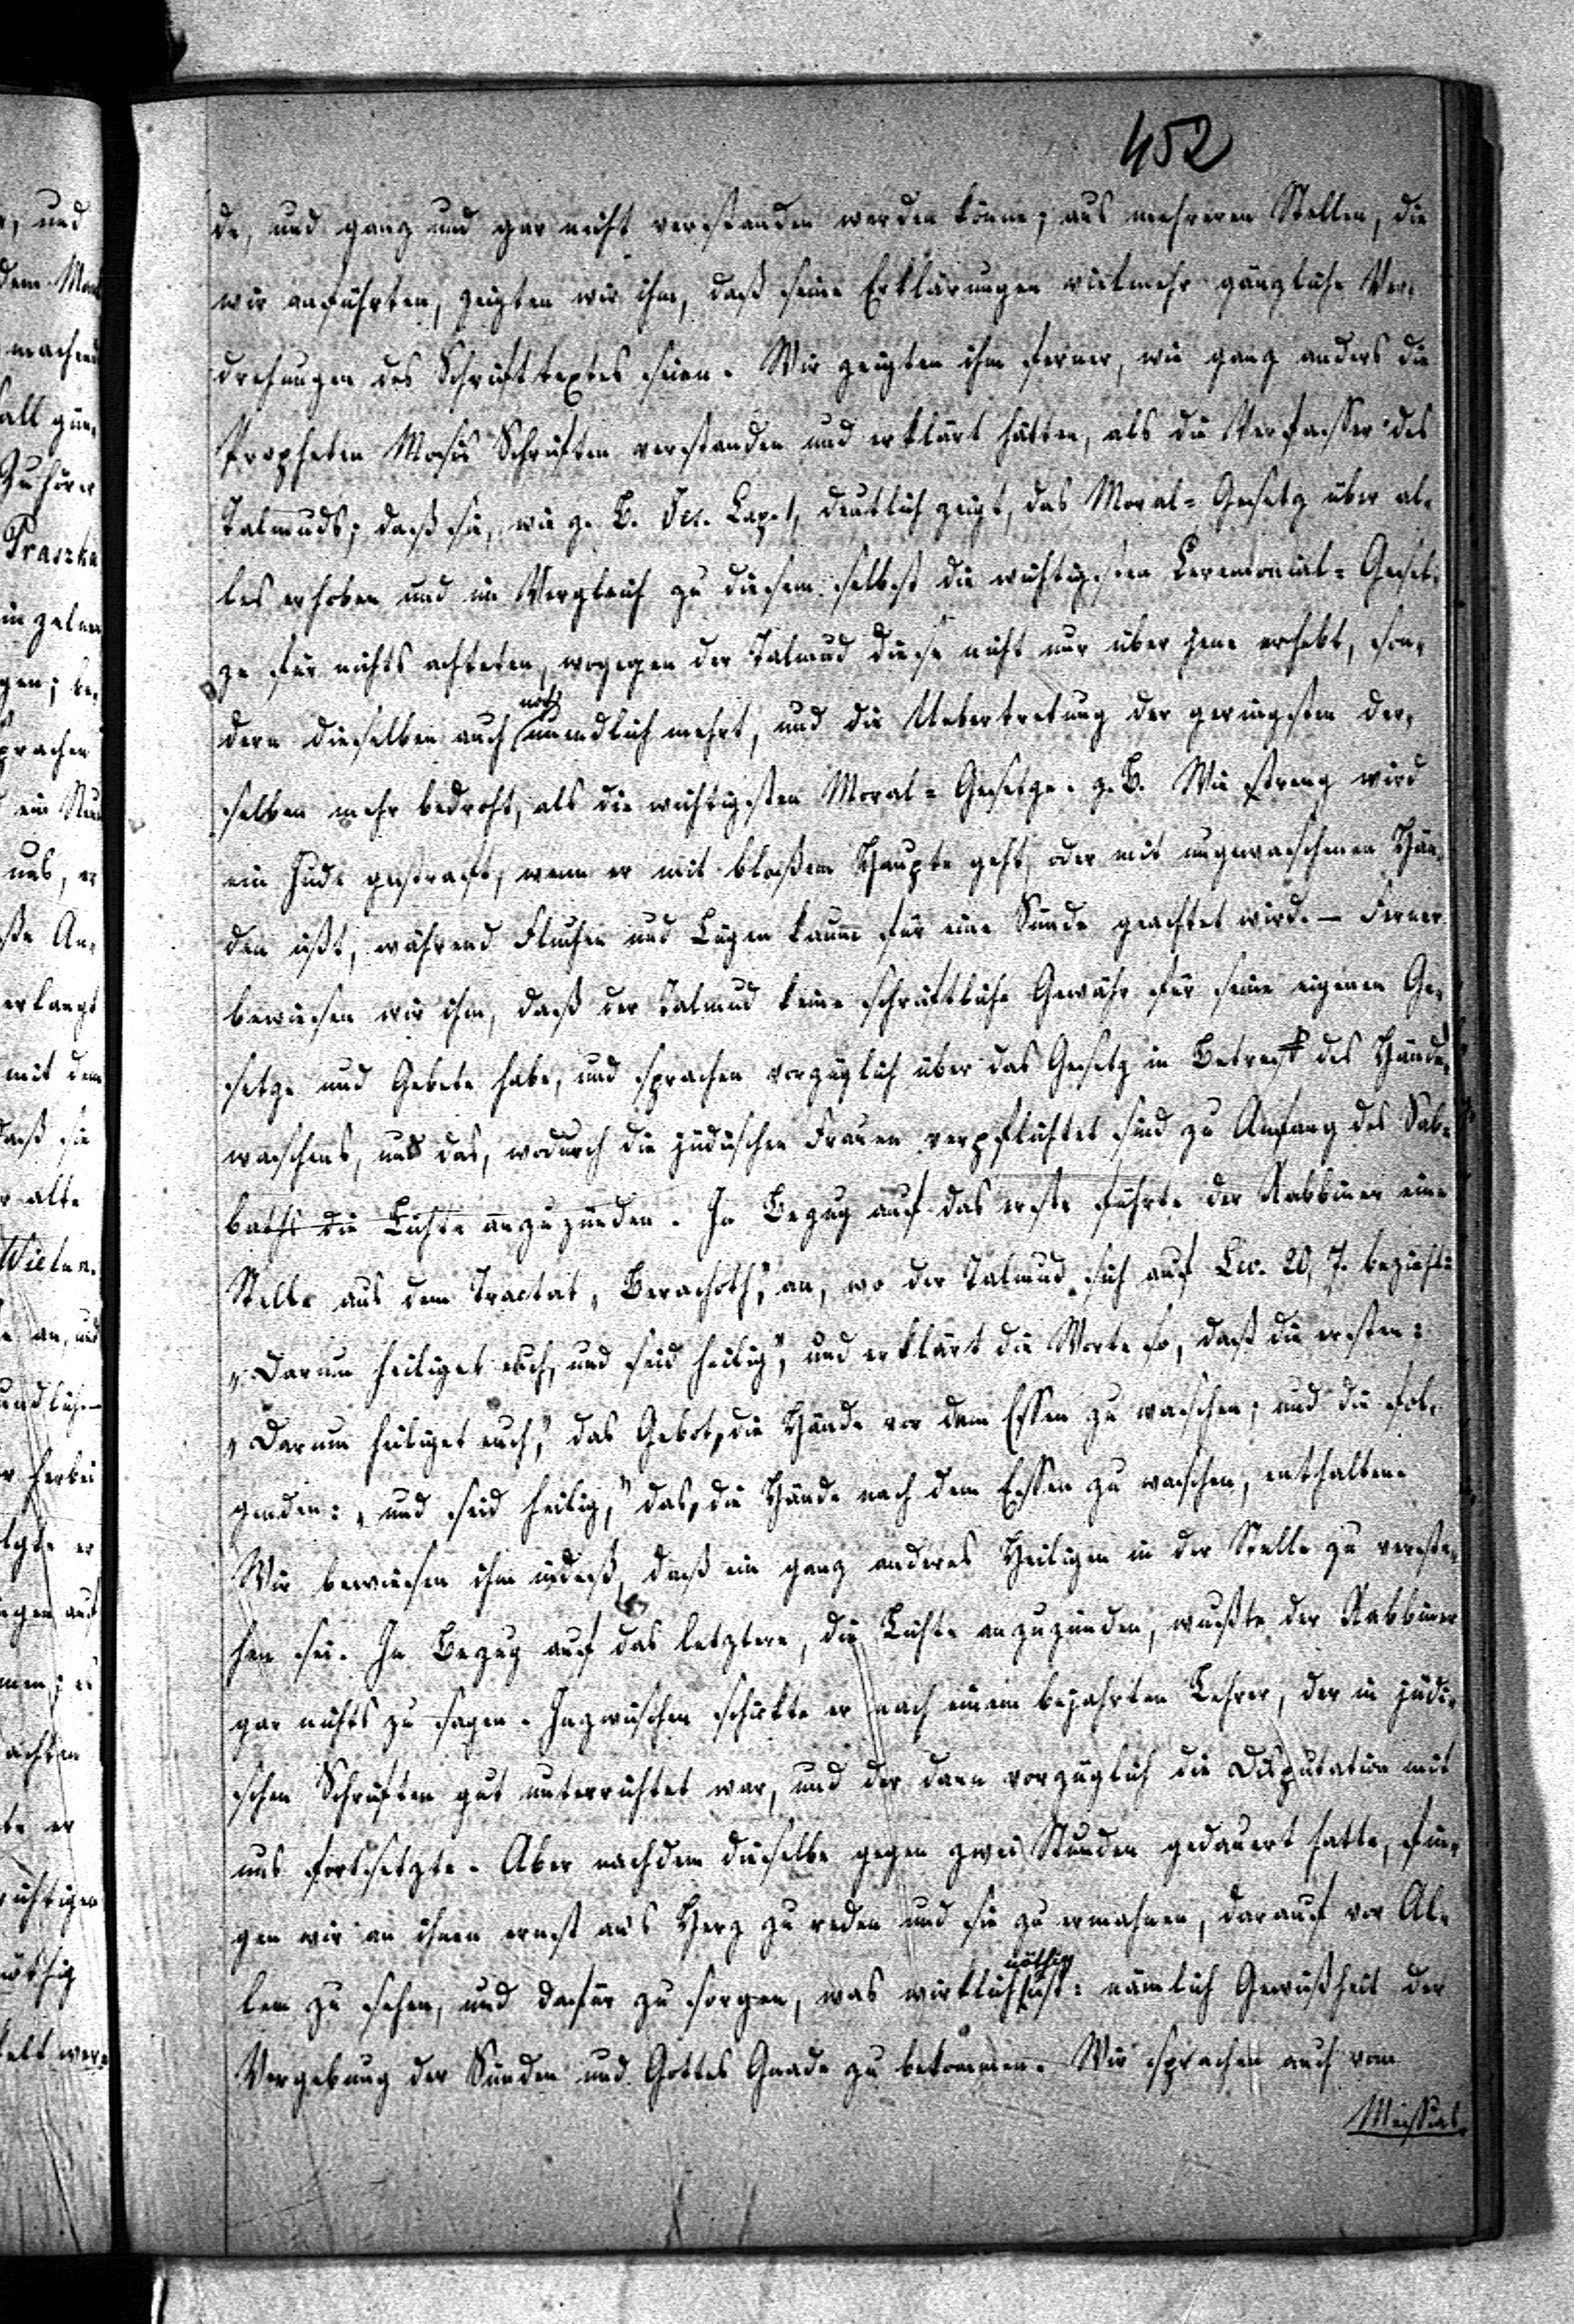 452
de, und ganz und gar nicht verstanden werden könne; aus mehreren Stellen, die
wir anführten, zeigten wir ihm, daß seine Erklärungen vielmehr gänzliche Ver-
drehungen des Schrifttextes seien. Wir zeigten ihm ferner, wie ganz anders die
Propheten Mosis Schriften verstanden und erklärt hätten, als die Verfasser des
Talmuds; daß sie, wie z. B. Jes. Cap. 1, deutlich zeigt, das Moral-Gesetz über al-
les erhoben und im Vergleich zu diesem selbst die wichtigsten Ceremonial-Geset-
ze für nichts achteten, wogegen der Talmud diese nicht nur über jene erhebt, son-
dern dieselben auch noch unendlich mehrt, und die Uebertretung der geringsten der-
selben mehr bedroht, als die wichtigsten Moral-Gesetze. z. B. Wie streng wird
ein Jude gestraft, wenn er mit bloßem Haupte geht, oder mit ungewaschenen Hän-
den ißt, während Fluchen und Lügen kaum für eine Sünde geachtet wird. – Ferner
bewiesen wir ihm, daß der Talmud keine schriftliche Gewähr für seine eigenen Ge-
setze und Gebete habe, und sprachen vorzüglich über das Gesetz in Betreff des Hände-
waschens, und das, wodurch die jüdischen Frauen verpflichtet sind zu Anfang des Sab-
baths die Lichte anzuzünden. In Bezug auf das erste führte der Rabbiner eine
Stelle aus dem Tractat „Berachoth“, an, wo der Talmud sich auf Lev. 20, 7. bezieht:
„Darum heiliget euch, und seid heilig“, und erklärt die Worte so, daß die ersten:
„Darum heiliget euch,“ das Gebot, die Hände vor dem Essen zu waschen; und die fol-
genden: „und seid heilig,“ das, die Hände nach dem Essen zu waschen, enthalten.
Wir bewiesen ihm indeß, daß ein ganz anderes Heiligen in der Stelle zu verste-
hen sei. In Bezug auf das letztere, die Lichte anzuzünden, wußte der Rabbiner
gar nichts zu sagen. Inzwischen schickte er nach einem bejahrten Lehrer, der in jüdi-
schen Schriften gut unterrichtet war, und der dann vorzüglich die Disputation mit
uns fortsetzte. Aber nachdem dieselbe gegen zwei Stunden gedauert hatte, fin-
gen wir an ihnen ernst an's Herz zu reden und sie zu ermahnen, darauf vor Al-
lem zu sehen, und dafür zu sorgen, was wirklich nöthig ist: nämlich Gewißheit der
Vergebung der Sünden und Gottes Gnade zu bekommen. Wir sprachen auch vom
Messias.